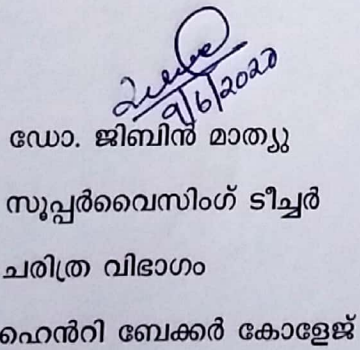 9/6/2020
ഡോ. ജിബിൻ മാത്യു
സൂപ്പർവൈസിംഗ് ടീച്ചർ
ചരിത്ര വിഭാഗം
ഹെൻറി ബേക്കർ കോളേജ്